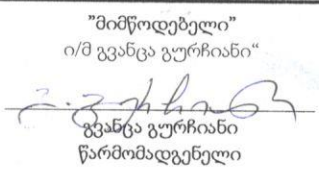 ”მიმწოდებელი”
ი/მ გვანცა გურჩიანი“
გ. გურჩიანი
გვანცა გურჩიანი
წარმომადგენელი